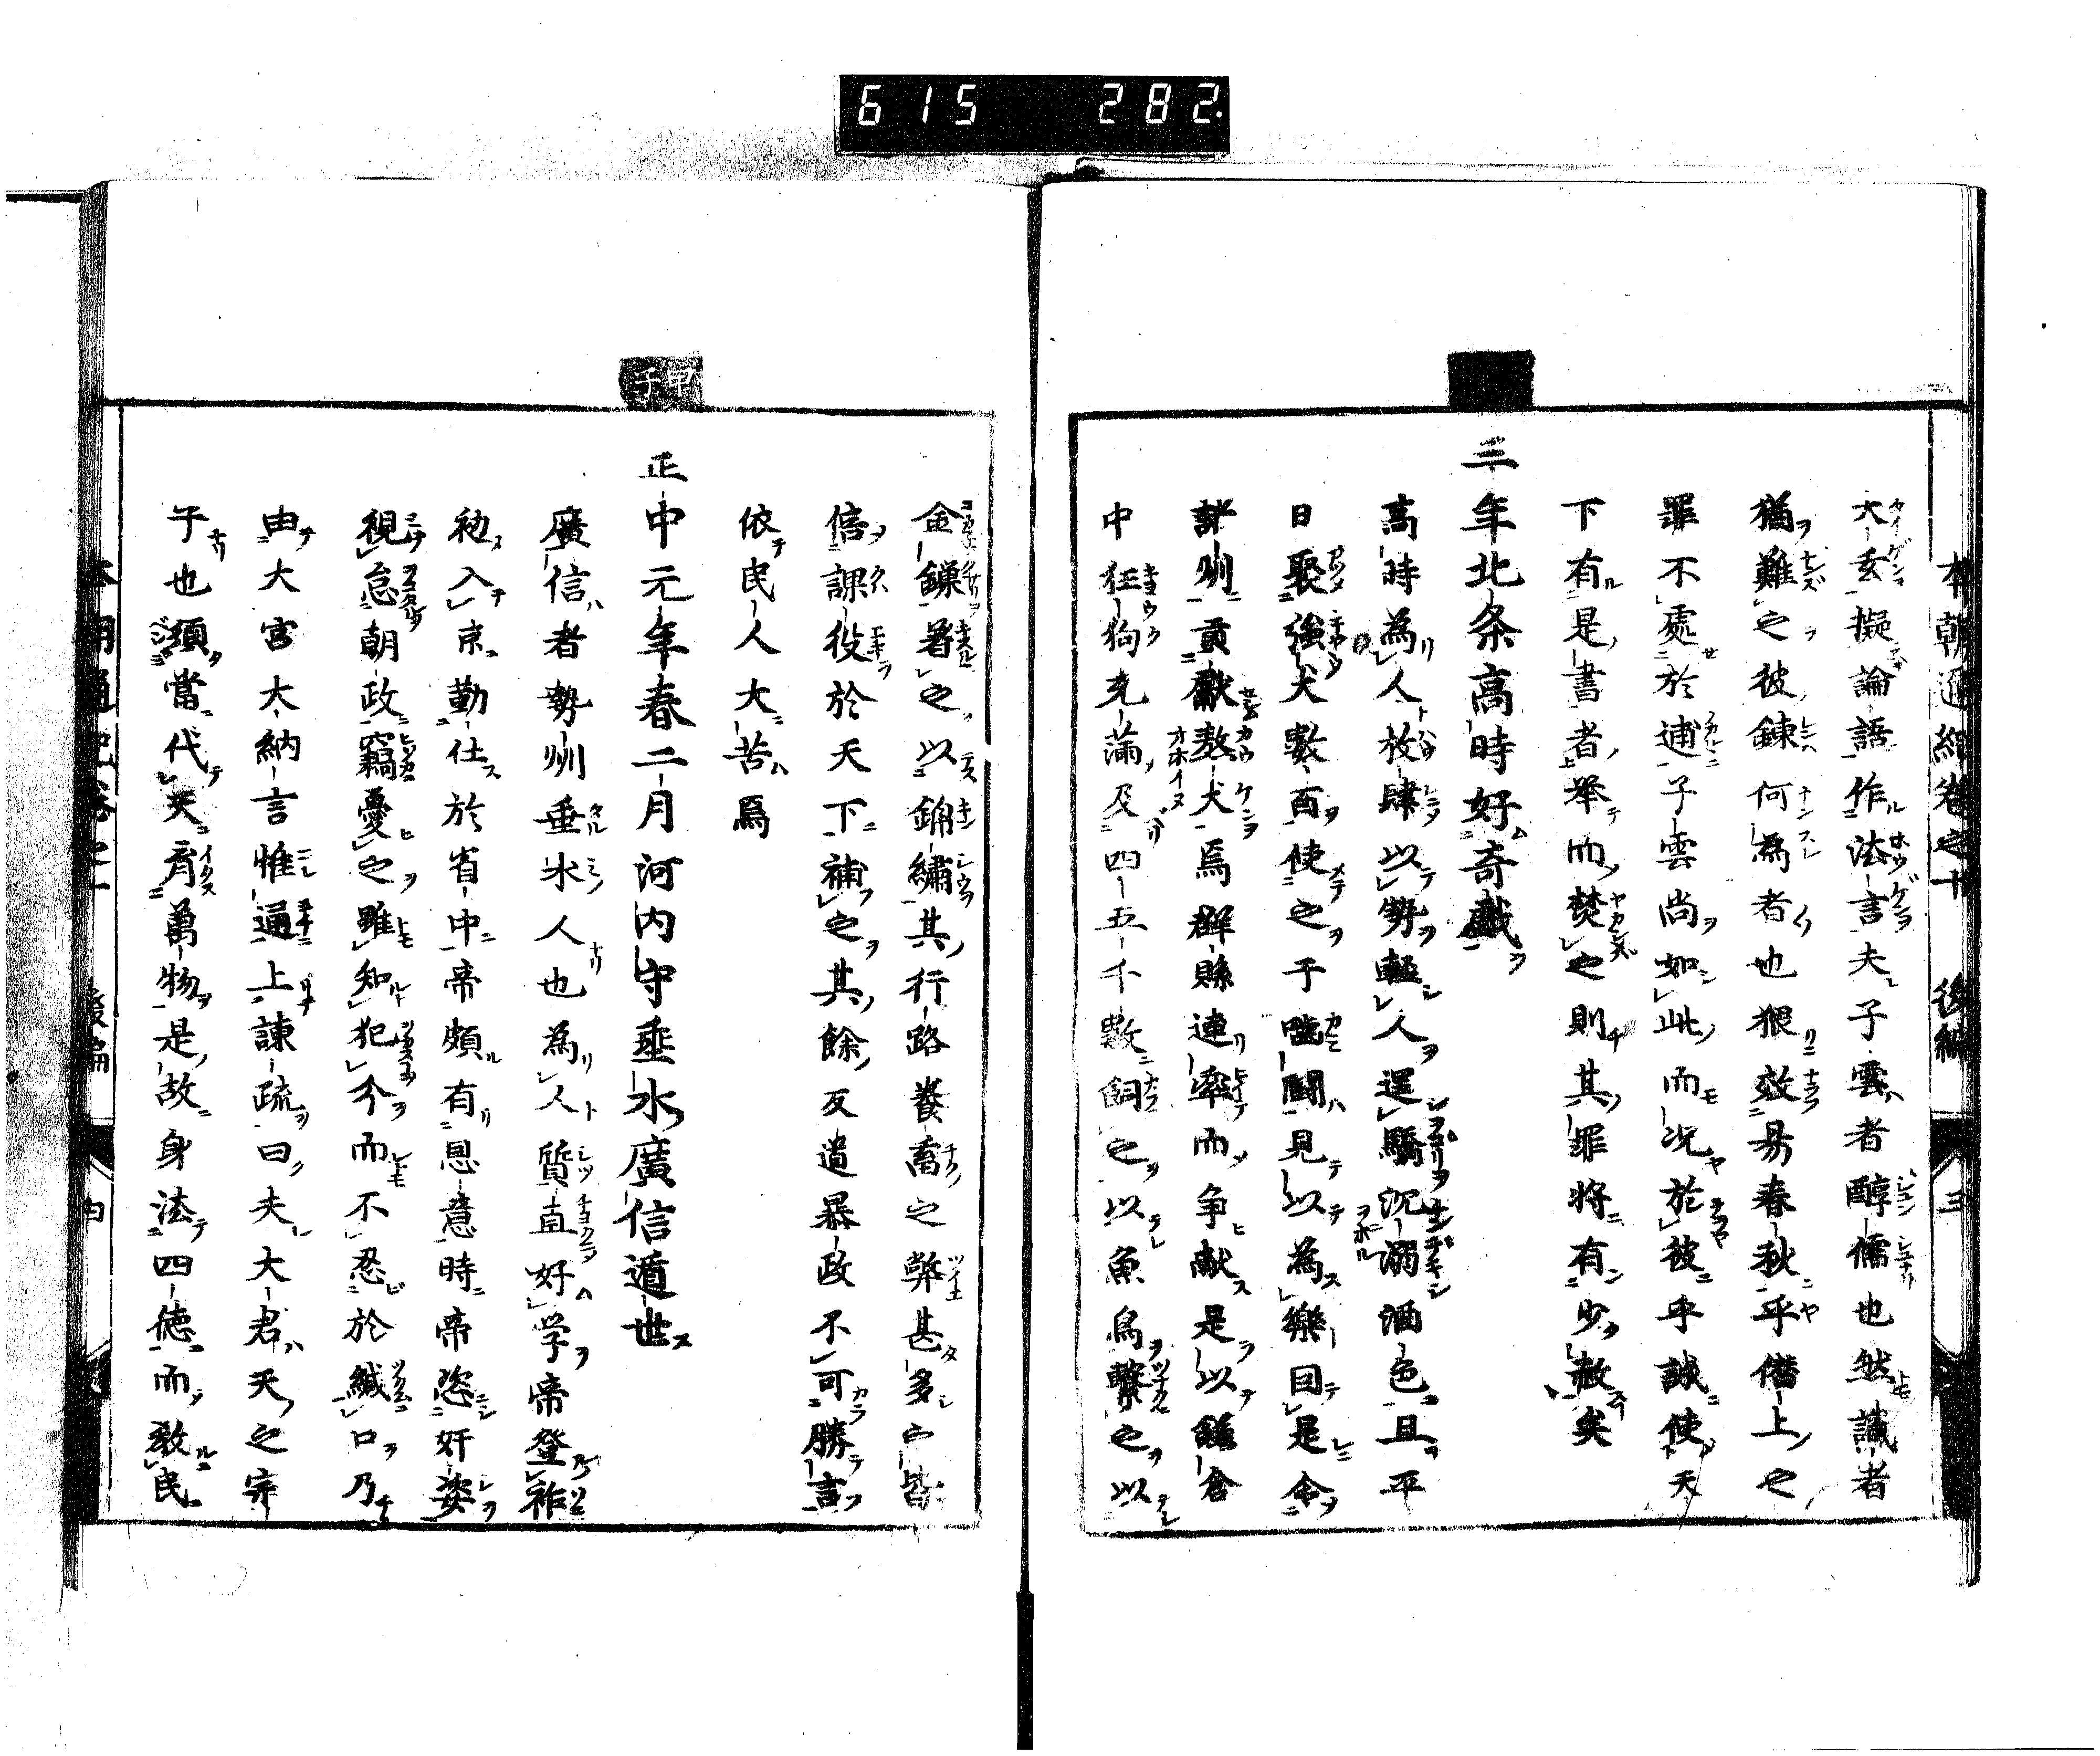 615 282
本朝通紀卷之十 後編 三
大玄擬論語作法言夫子雲者醇儒也然識者
猶難之彼錬何為者也猥效易春秋乎僭上之
罪不處於逋子雲尚如此而况於彼乎誠使天
下有是書者举而焚之則其罪将有少赦矣
三年北条高時好奇戯
高時為人放肆以勢輕人逞驕沉溺酒色且平
日聚強犬數百使之于噛闘見以為樂因是令
諸州貢獻敖犬焉群縣連牽而争献是以鎌倉
中狂狗充滿及四五千數飼之以魚鳥繫之以
金鏁着之以錦繍其行路養畜之弊甚多亡皆
倍課役於天下補之其餘反遣暴政不可勝言
依民人大苦焉
甲子
正中元年春二月河内守垂水廣信遁世
廣信者勢州垂水人也為人質直好学帝登祚
初入京勤仕於省中帝頗有恩意時帝恣奸姿
視怠朝政竊憂之雖知犯今而不忍於緘口乃
由大宮大納言惟通上諫疏曰夫大君天之宗
子也須當代天育萬物是故身法四德而教民
本朝通紀卷之十 後編 四